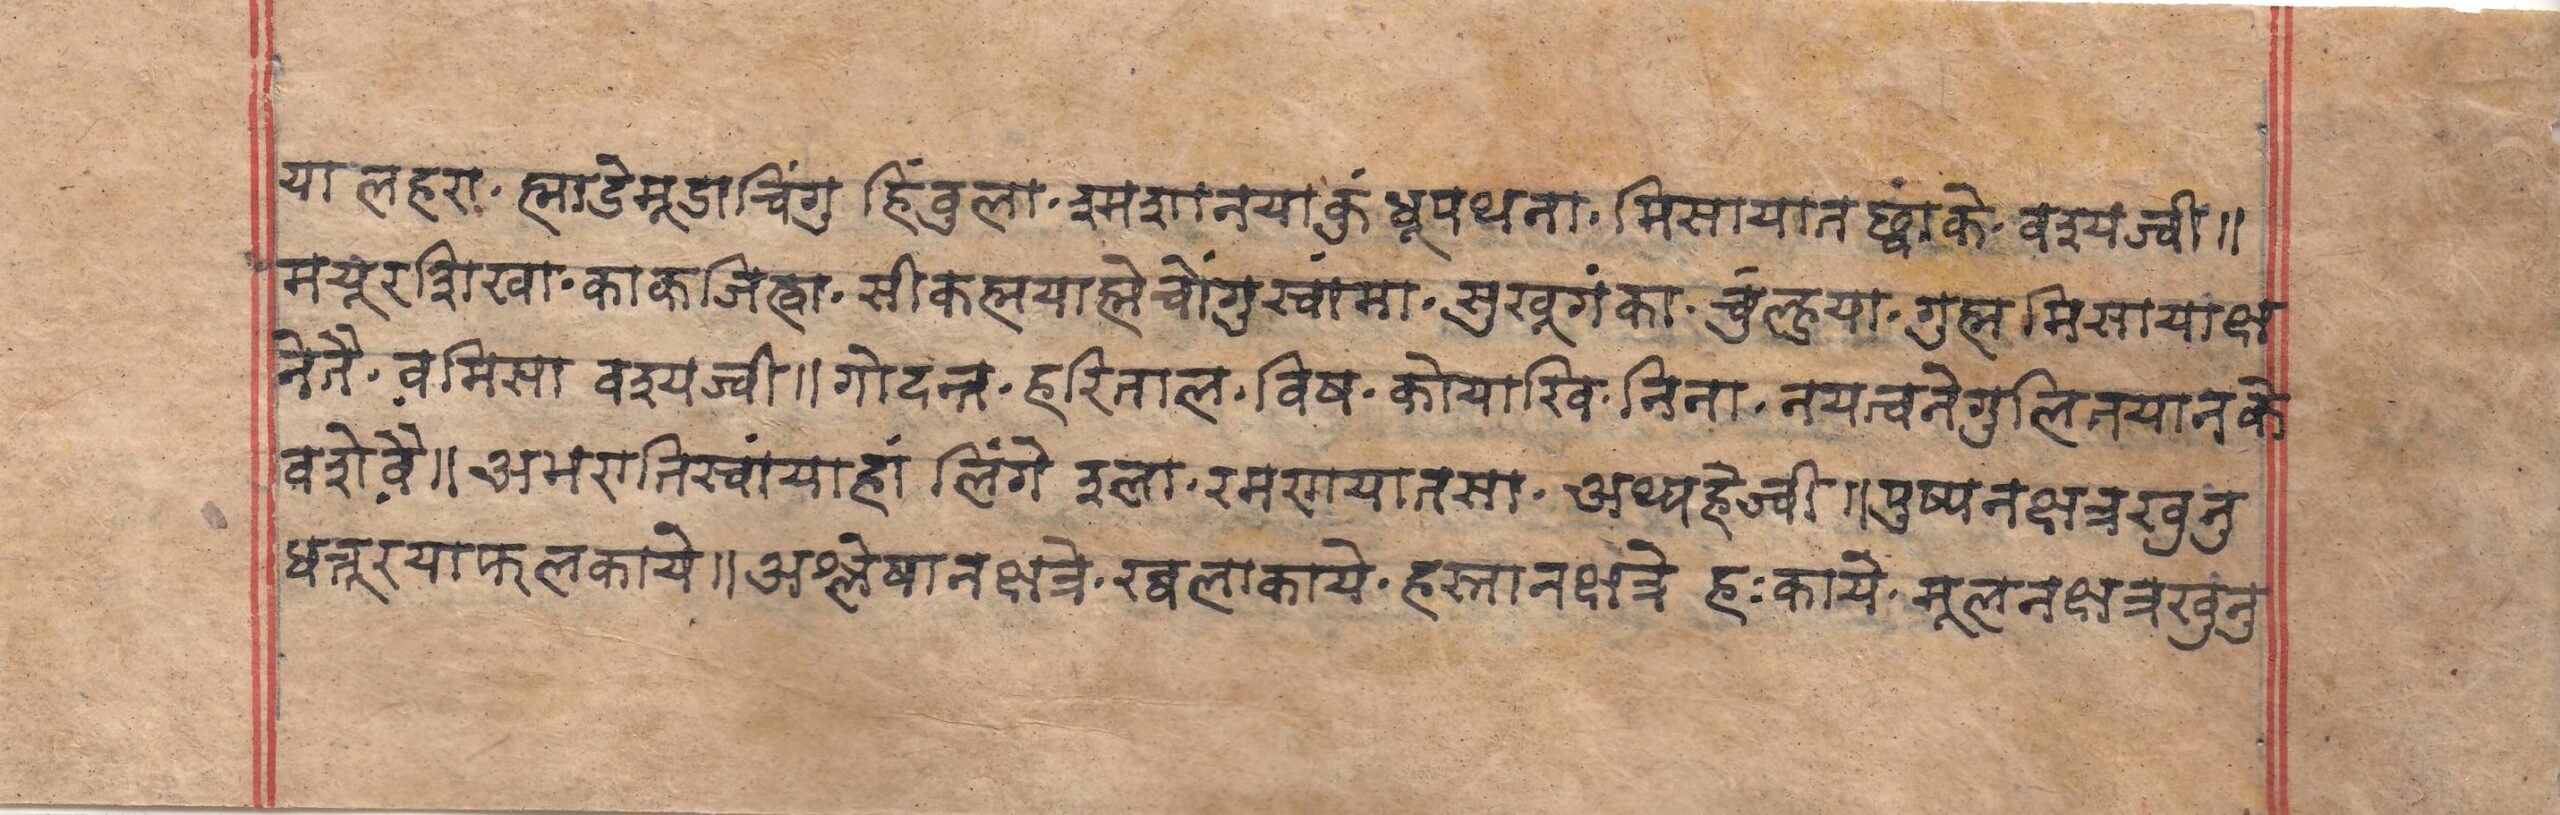 या लहरा· ह्माडेमूडाचिंगु हिंवुला· श्मशानयाकुं धूपथना· मिसायात छ्वाके· वश्यज्वी॥
मयूरशिखा· काकजित्वा· सीकह्मयाह्मेचोंगुस्वांमा· सुखूगंका· चुंल्हुया· गुह्म मिसायाक्ष
नेतै· वमिसा वश्यज्वी॥ गोदन्त· हरिताल· विष· कोयाखि· तिना· नयत्वनेगुलितयानके
वशेवै॥ अमरातिस्वांयाहां लिंगे इला· रमरायातसा· अथ्यहेज्वी॥ पुष्यनक्षत्रखुनु
धत्तूरयाफलकाये॥ अश्लेषानक्षत्रे· रव्वलाकाये· हस्तानक्षत्रे हःकाये· मूलनक्षत्रखुनु